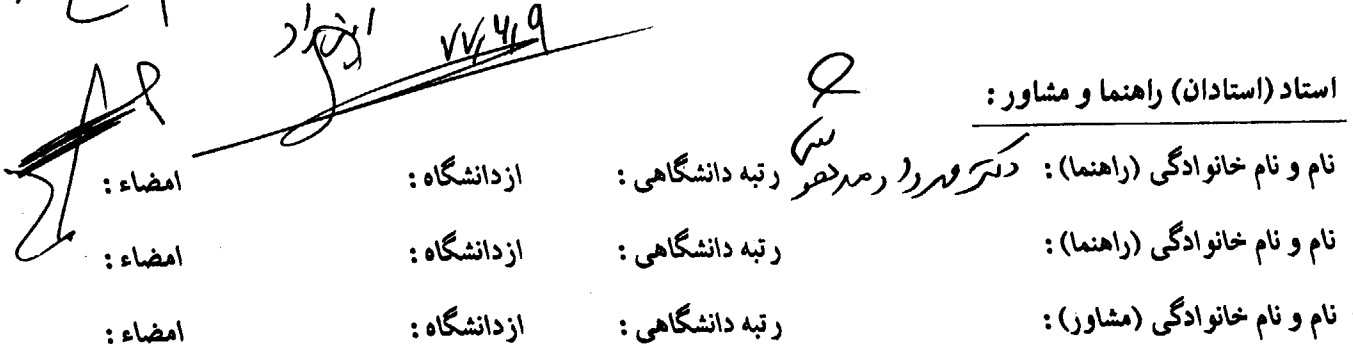 ۷۷,۴,۹
استاد (استادان) راهنما و مشاور :
نام و نام خانوادگی (راهنما) : دکتر مهرداد رتبه دانشگاهی : ازدانشگاه : امضاء :
نام و نام خانوادگی (راهنما) : رتبه دانشگاهی : ازدانشگاه : امضاء :
نام و نام خانوادگی (مشاور) : رتبه دانشگاهی : ازدانشگاه : امضاء :